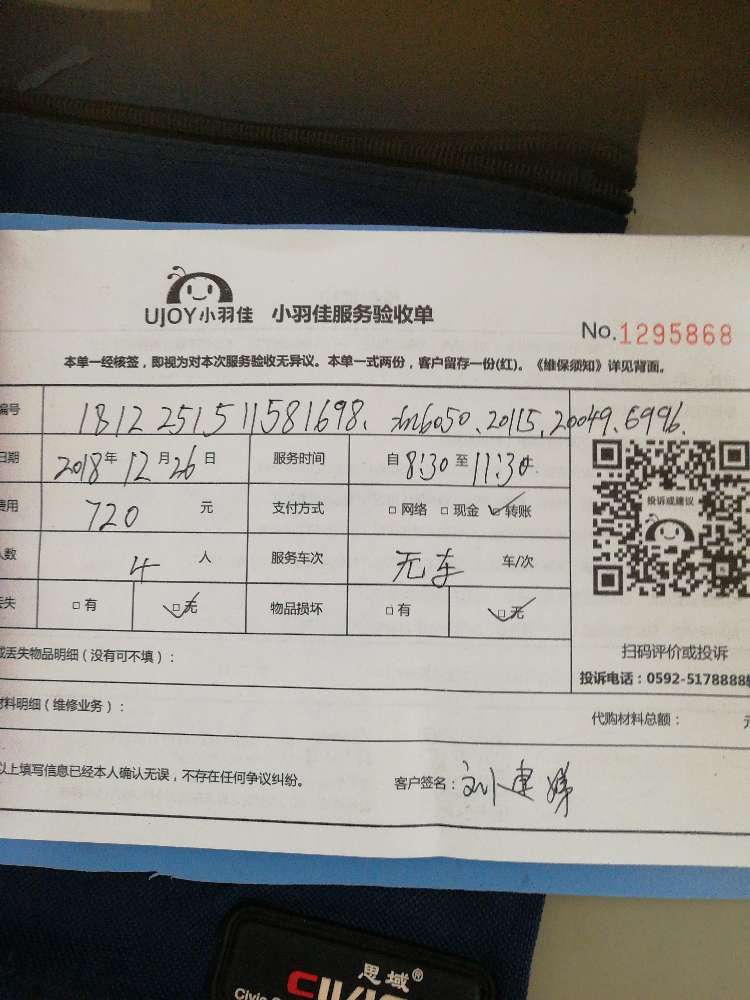 UJOY小羽佳 小羽佳服务验收单
No.1295868
本单一经核签，即视为对本次服务验收无异议。本单一式两份，客户留存一份(红)。《维保须知》详见背面。
编号 1812251511581698、 6050、20115、20049、6996.
日期 2018年12月26日 服务时间 自8:30至11:30
费用 720 元 支付方式 □网络 □现金 □转账
人数 4 人 服务车次 无车 车/次
丢失 □有 □无 物品损坏 □有 □无
投诉或建议
扫码评价或投诉
投诉电话：0592-5178888
或丢失物品明细（没有可不填）：
材料明细（维修业务）： 代购材料总额： 元
以上填写信息已经本人确认无误，不存在任何争议纠纷。 客户签名：刘建娣
思域®
Civic
CIVIC